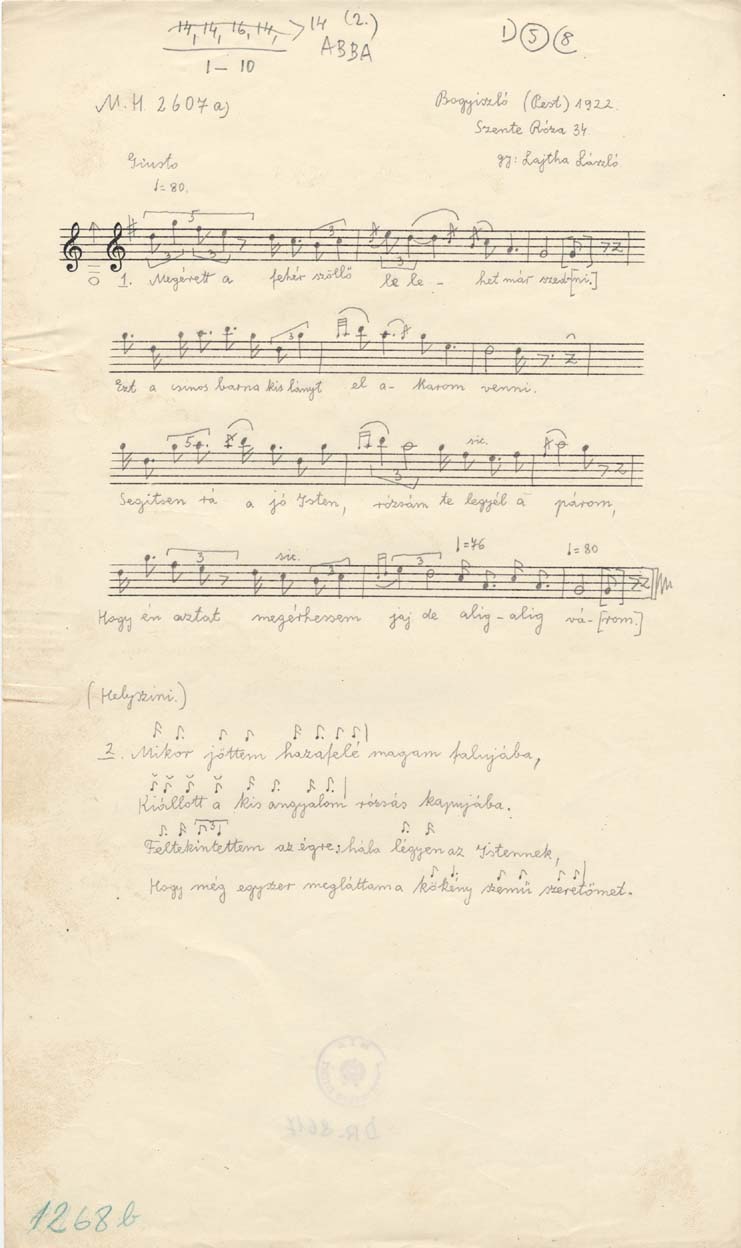 14, 14, 16, 14, > 14 (2.)
ABBA
1 – 10
1) 5 8
M.H. 2607 a)
Bogyiszló (Pest) 1922.
Szente Róza 34.
gy: Lajtha László
Giusto
♩= 80.
5
3 3 3
3
1. Megérett a fehér szöllő le le - het már szed-[ni.]
3
Ezt a csinos barna kis lányt el a- karom venni.
5 sic.
3
Segitsen rá a jó Isten, rózsám te legyél a párom,
♩=76 ♩=80
3 sic. 3 3
Hogy én aztat megérhessem jaj de alig-alig vá-[rom.]
(Helyszini.)
2. Mikor jöttem hazafelé magam falujába,
Kiállott a kis angyalom rózsás kapujába.
3
Feltekintettem az égre: hála légyen az Istennek,
Hogy még egyszer megláttam a kökény szemű szeretőmet.
1268 b